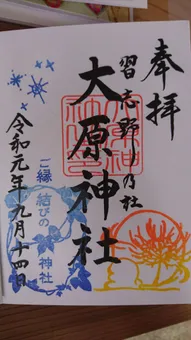 奉拝
習志野乃杜
大原神社
ご縁
結びの
神社
令和元年九月十四日